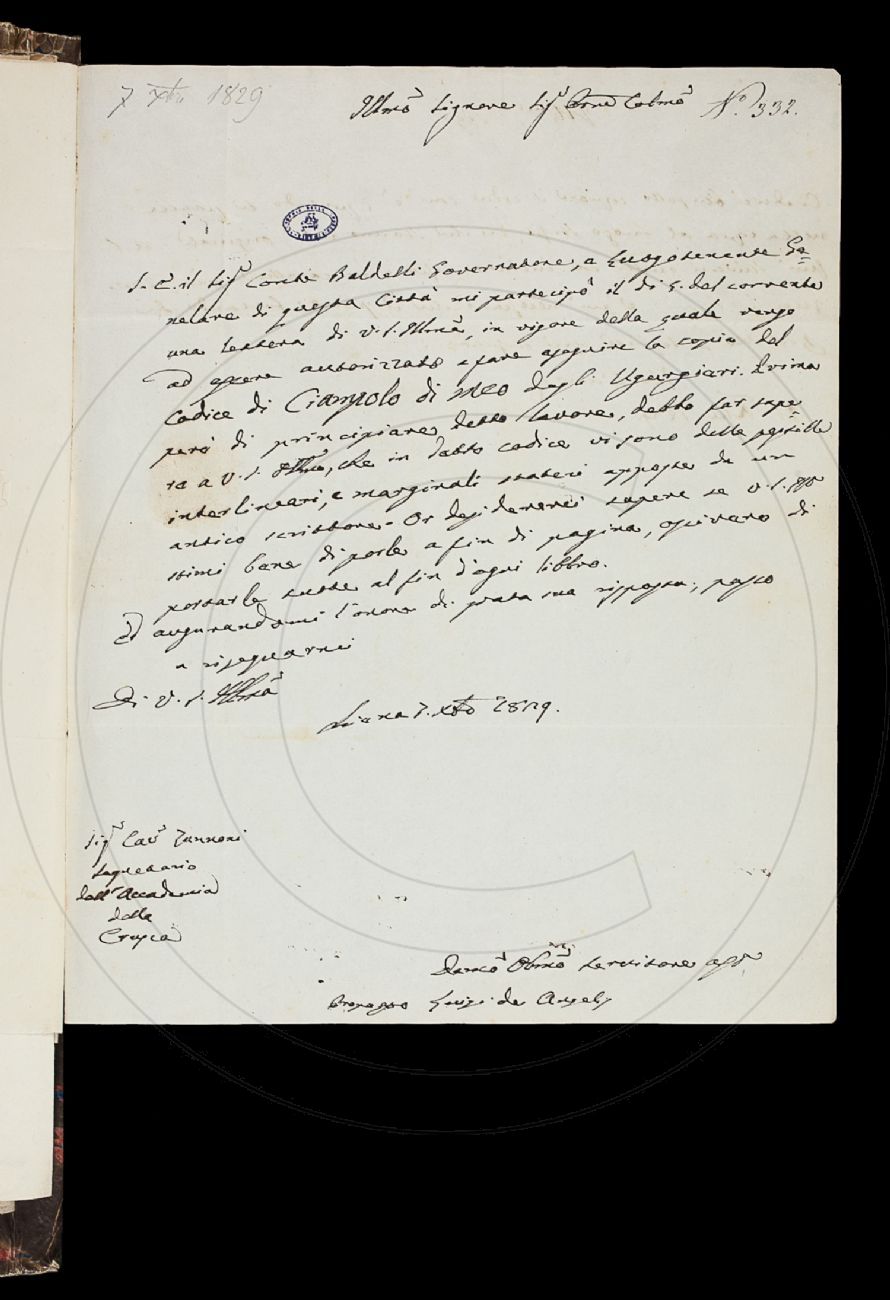 7 Xbre 1829
Illmo Signore Sigr Prone Colmo No. 332.
S. E. il Sigr Conte Baldelli Governatore, e Luogotenente Ge=
nerale di questa Città mi partecipò il di 5. del corrente
una lettera di V. S. Illma, in vigore della quale vengo
ad essere autorizzato a fare eseguire la copia del
Codice di Ciampolo di Meo degli Ugurgieri. Prima
però di principiare detto lavoro, debbo far sape=
re a V. S. Illma, che in detto codice vi sono delle postille
interlineari, e marginali statevi apposte da un
antico scrittore. Or desidererei sapere se V. S. Illma
stimi bene di porle a fin di pagina, o sivvero di
portarle tutte al fin d'ogni libbro.
Ed augurandomi l'onore di grata sua risposta, passo
a risegnarmi
Di V. S. Illma
Siena 7. Xbre 1829.
Sigr Cavr Zannoni
Segretario
dell'Accademia
della
Crusca
Devmo Obbmo Servitore
Luigi de Angelis